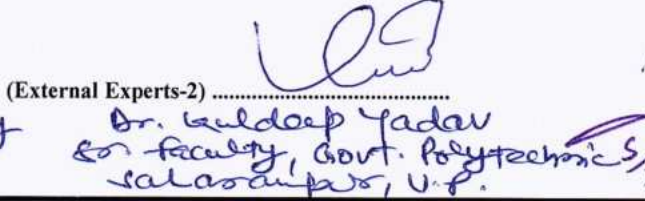 (External Experts-2) ..........................................
Dr. Kuldeep Yadav
Sr. faculty, Govt. Polytechnic
Saharanpur, U.P.